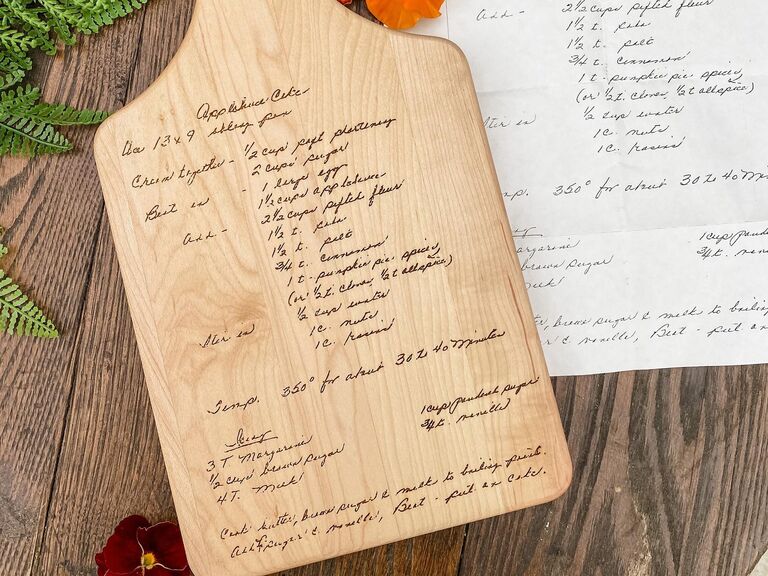 Applesauce Cake
Use 13 x 9 baking pan
Cream together - 1/2 cup soft shortening
2 cups sugar
Beat in - 1 large egg
1 1/2 cups applesauce
Add - 2 1/2 cups sifted flour
1 1/2 t. soda
1 1/2 t. salt
3/4 t. cinnamon
1 t - pumpkin pie spices
(or 1/2 t. cloves, 1/2 t allspice)
1/2 cup water
Stir in 1 C. nuts
1 C. raisins
Temp. 350° for about 30 to 40 minutes
Icing
3 T Margarine
1/2 cup brown sugar
4 T. Milk
1 cup powdered sugar
3/4 t. vanilla
Cook butter, brown sugar & milk to boiling point.
Add sugar & vanilla, Beat - put on cake.
Add - 2 1/2 cups sifted flour
1 1/2 t. soda
1 1/2 t. salt
3/4 t. cinnamon
1 t - pumpkin pie spices
(or 1/2 t. cloves, 1/2 t allspice)
1/2 cup water
in 1 C. nuts
1 C. raisins
mp. 350° for about 30 to 40 Min
argarine
brown sugar
ilk
1 cup powde
3/4 t. van
brown sugar & milk to boiling
& vanilla, Beat - put on